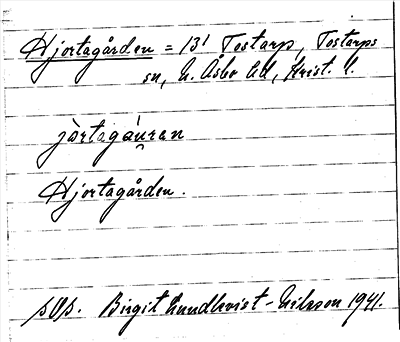 Hjortagården = 13¹ Tostarp, Tostarps
sn, N. Åsbo hd, Krist. l.
jòrtagáu̯ran
Hjortagården.
sOp. Birgit Lundkvist-Nilsson 1941.